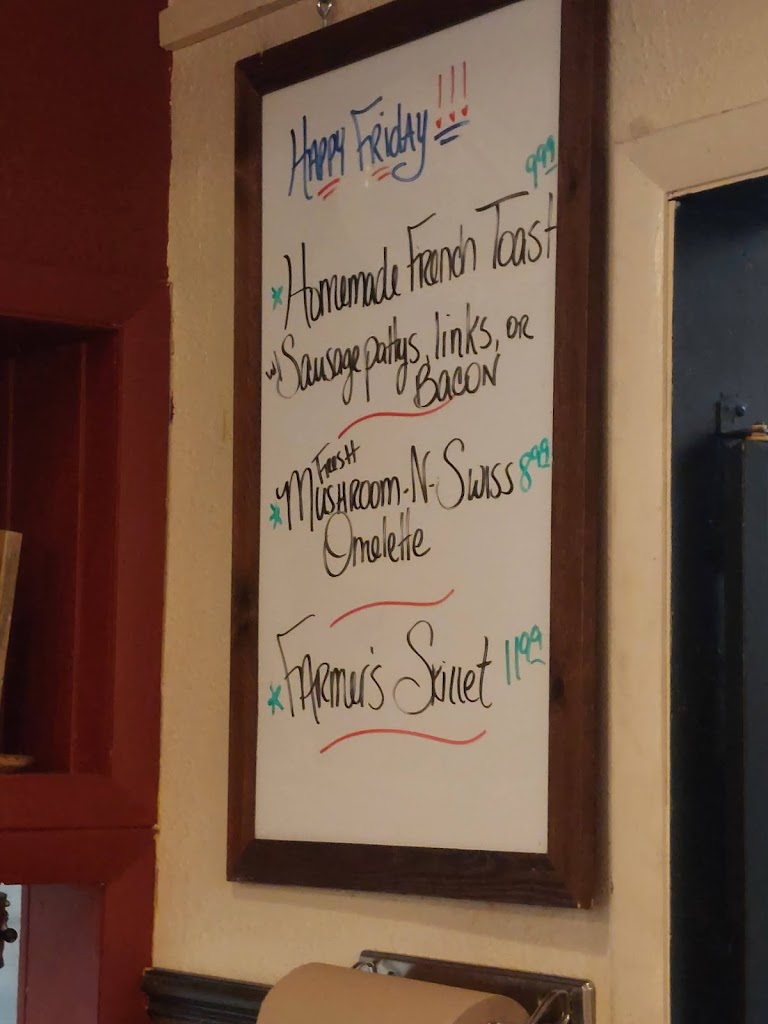 Happy Friday!!!
9.99
* Homemade French Toast
w/ Sausage pattys, links, or
Bacon
Fresh
* Mushroom-N-Swiss 8.99
Omelette
* Farmer's Skillet 11.99